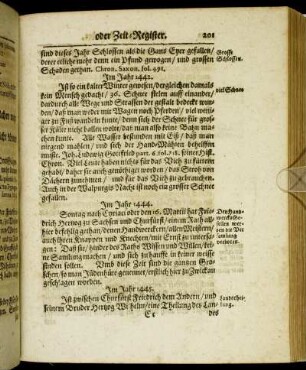 oder Zeit-Register. 201
sind dieses Jahr Schlossen als die Gans Eyer gefallen/
derer etliche mehr denn ein Pfund gewogen/ und grossen
Schaden gethan. Chron. Saxon. fol. 491.
Grosse
Schlossen.
Im Jahr 1442.
Ist so ein kalter Winter gewesen/ dergleichen damals
kein Mensch gedacht/ 36. Schnee fielen auff einander/
viel Schnee
dadurch alle Wege und Strassen der gestalt bedeckt wur-
den/ daß man weder mit Wagen noch Pferden/ viel weni-
ger zu Fuß wandeln kunte/ denn sich der Schnee für gros-
ser Kälte nicht ballen wolte/ daß man also keine Bahn ma-
chen kunte. Alle Wasser bestunden mit Eiß/ daß man
nirgend mahlen/ und sich der Hand-Mühlen behelffen
muste. Joh. Ludwig Gottfried part. 6. fol. 718. seiner Hist.
Chron. Viel Leute haben nichts für das Vieh zu füttern
gehabt/ daher sie auch genöthiget worden/ das Stroh von
Dächern zunehmen/ und für das Vieh zu gebrauchen.
Auch in der Walpurgis Nacht ist noch ein grosser Schnee
gefallen.
Im Jahr 1444.
Sonntag nach Cyriaci oder den 16. Martii hat Fri-
drich Hertzog zu Sachsen und Churfürst/ einem Rath all-
hier befehlig gethan/ denen Handwerckern/ allen Meistern/
auch ihren Knappen und Knechten/ mit Ernst zu untersa-
gen: Daß sie/ hinder des Raths Wissen und Willen/ kei-
ne Samlung machen/ und sich zu hauffe in keiner weisse
finden sollen. Umb diese Zeit sind die gantzen Gro-
schen/ so man Jüdenhüte genennet/ erstlich hier zu Zwickau
geschlagen worden.
Im Jahr 1445.
Ist zwischen Churfürst Friedrich dem Andern/ und
seinem Bruder Hertzog Wilhelm/ eine Theilung des Lan-
Landtthei-
lung.
Cc des